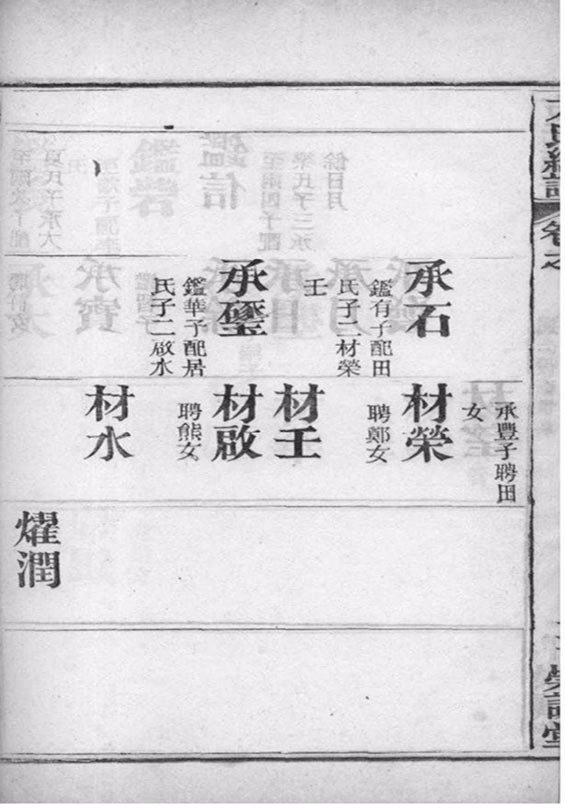 卷之
承石
鑑有子配田
氏子二材榮
壬
承
鑑華子配居
氏子二啟水
承豐子聘田
女
材榮
聘鄭女
材壬
材啟
聘熊女
材水
燿潤